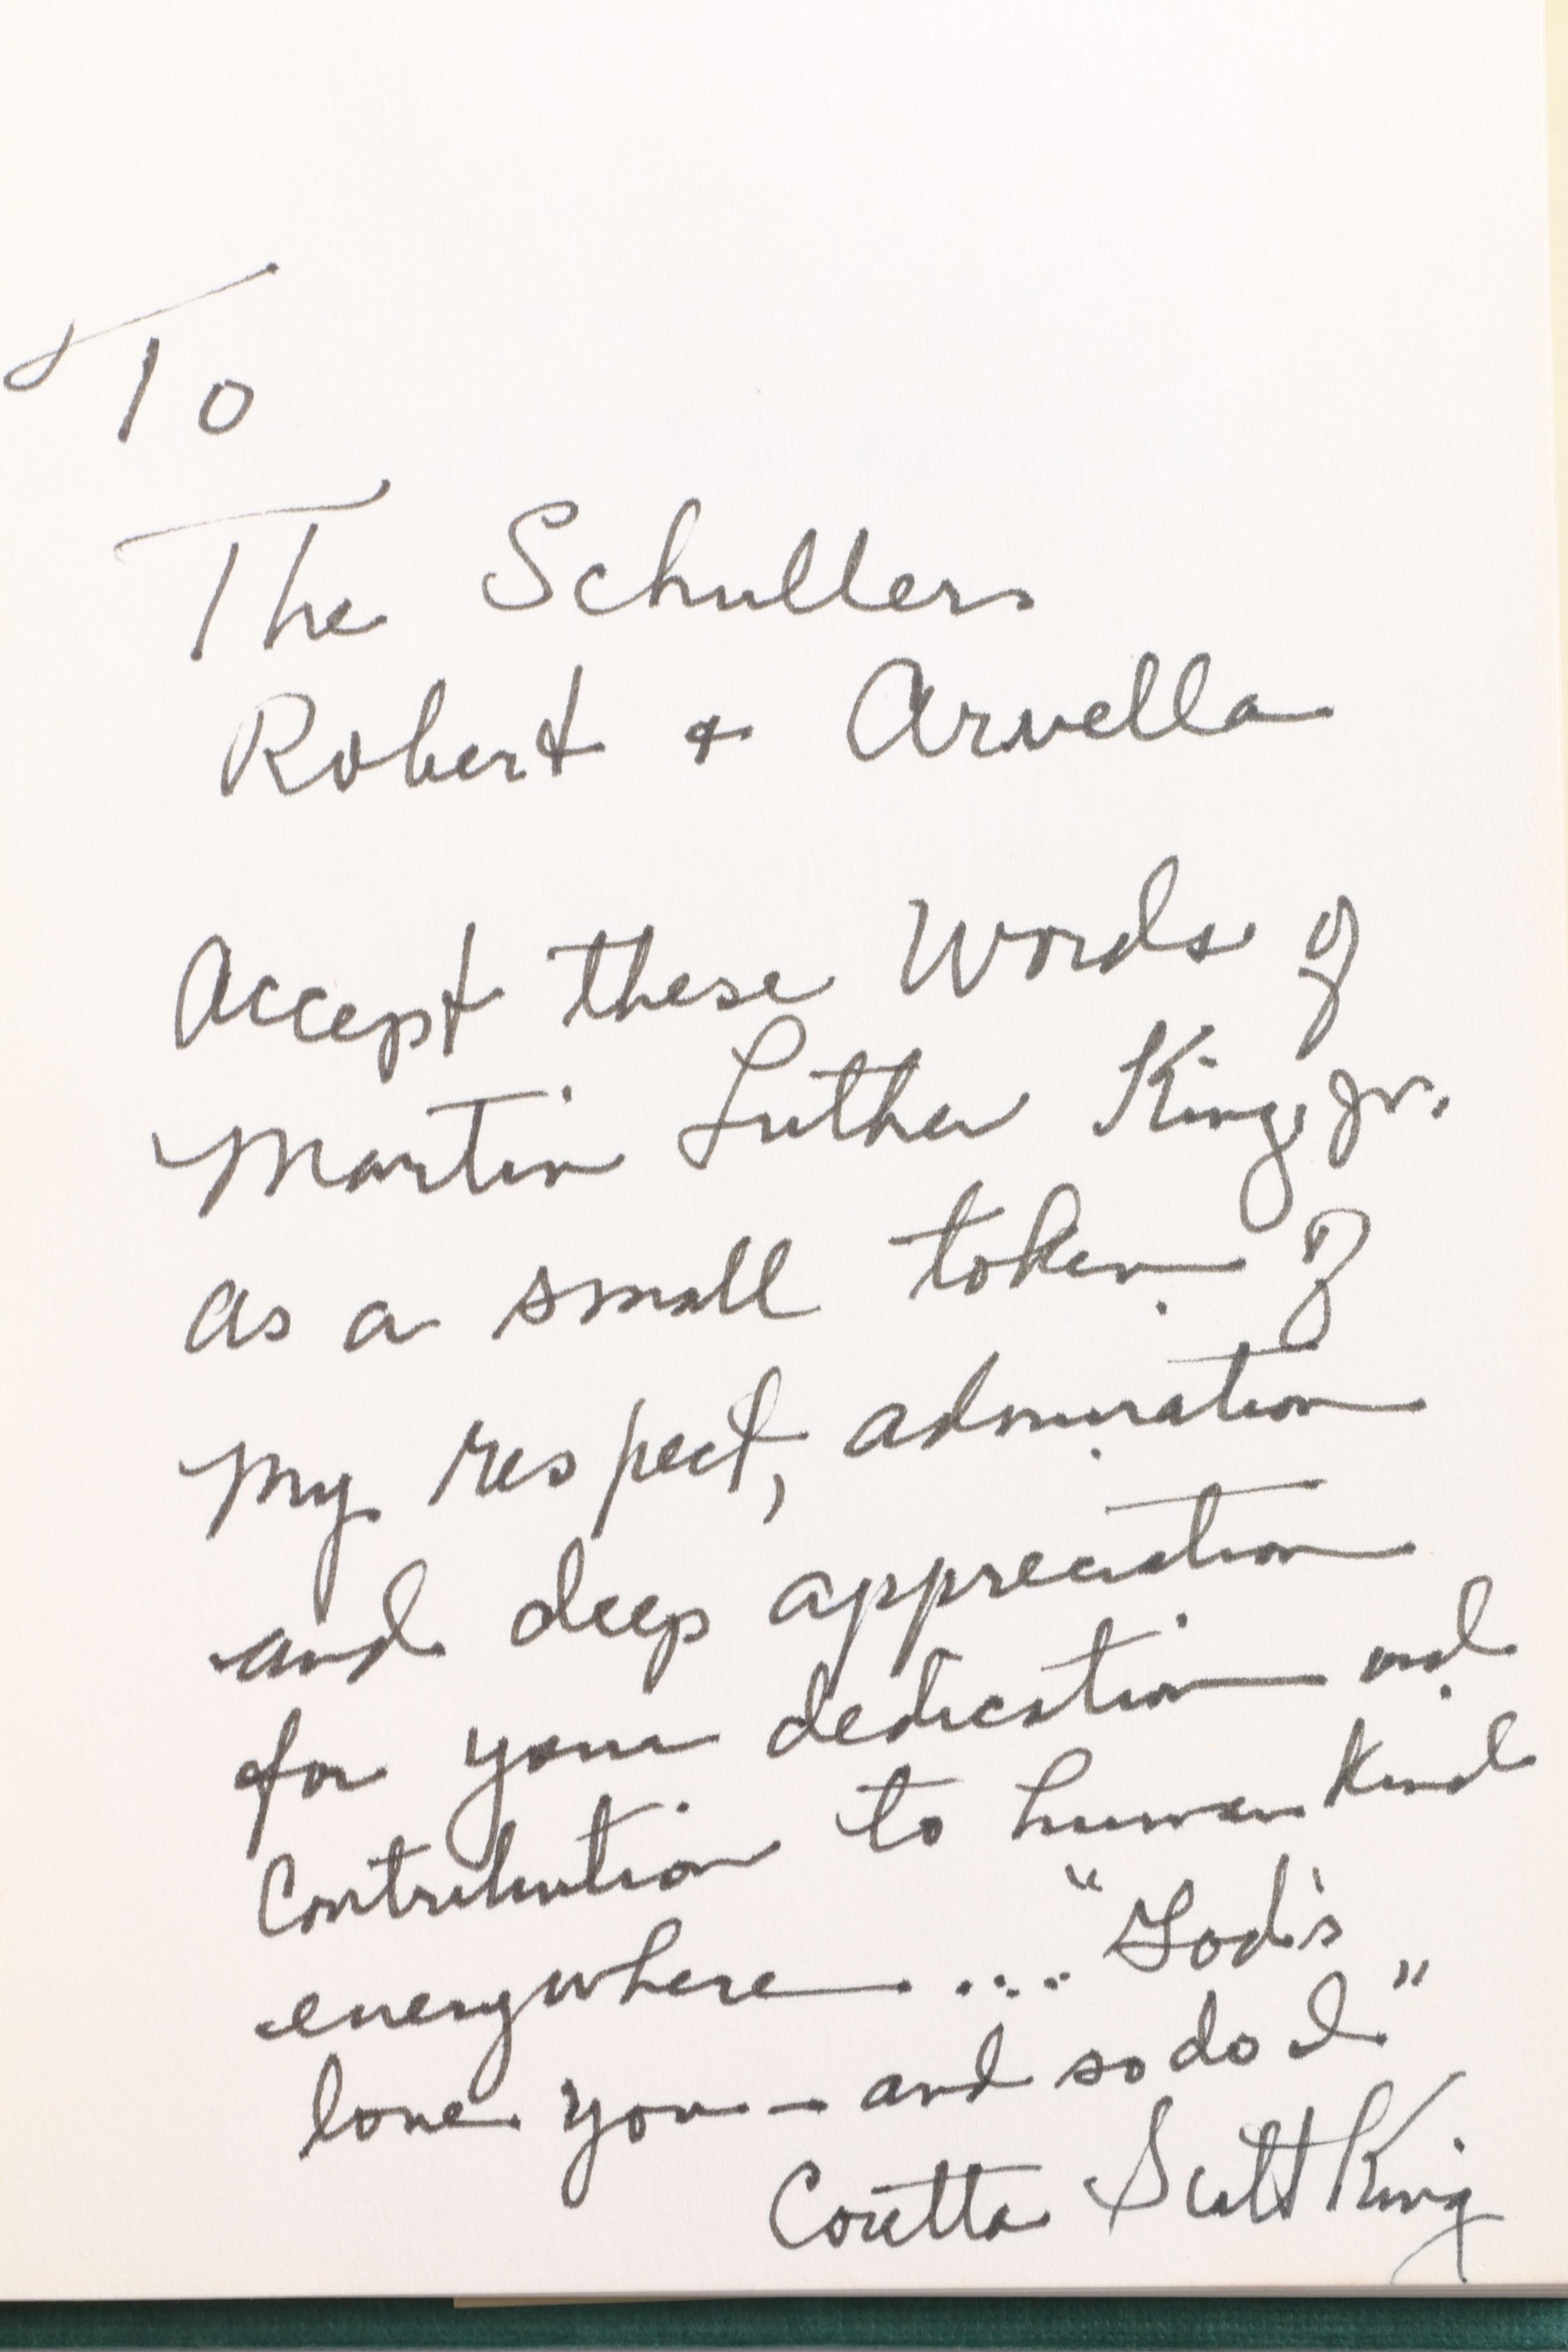 To
The Schullers
Robert & Arvella
Accept these words of
Martin Luther King, Jr.
as a small token of
my respect, admiration
and deep appreciation
for your dedication and
contribution to humankind
everywhere.... "God's
love you — and so do I"
Coretta Scott King